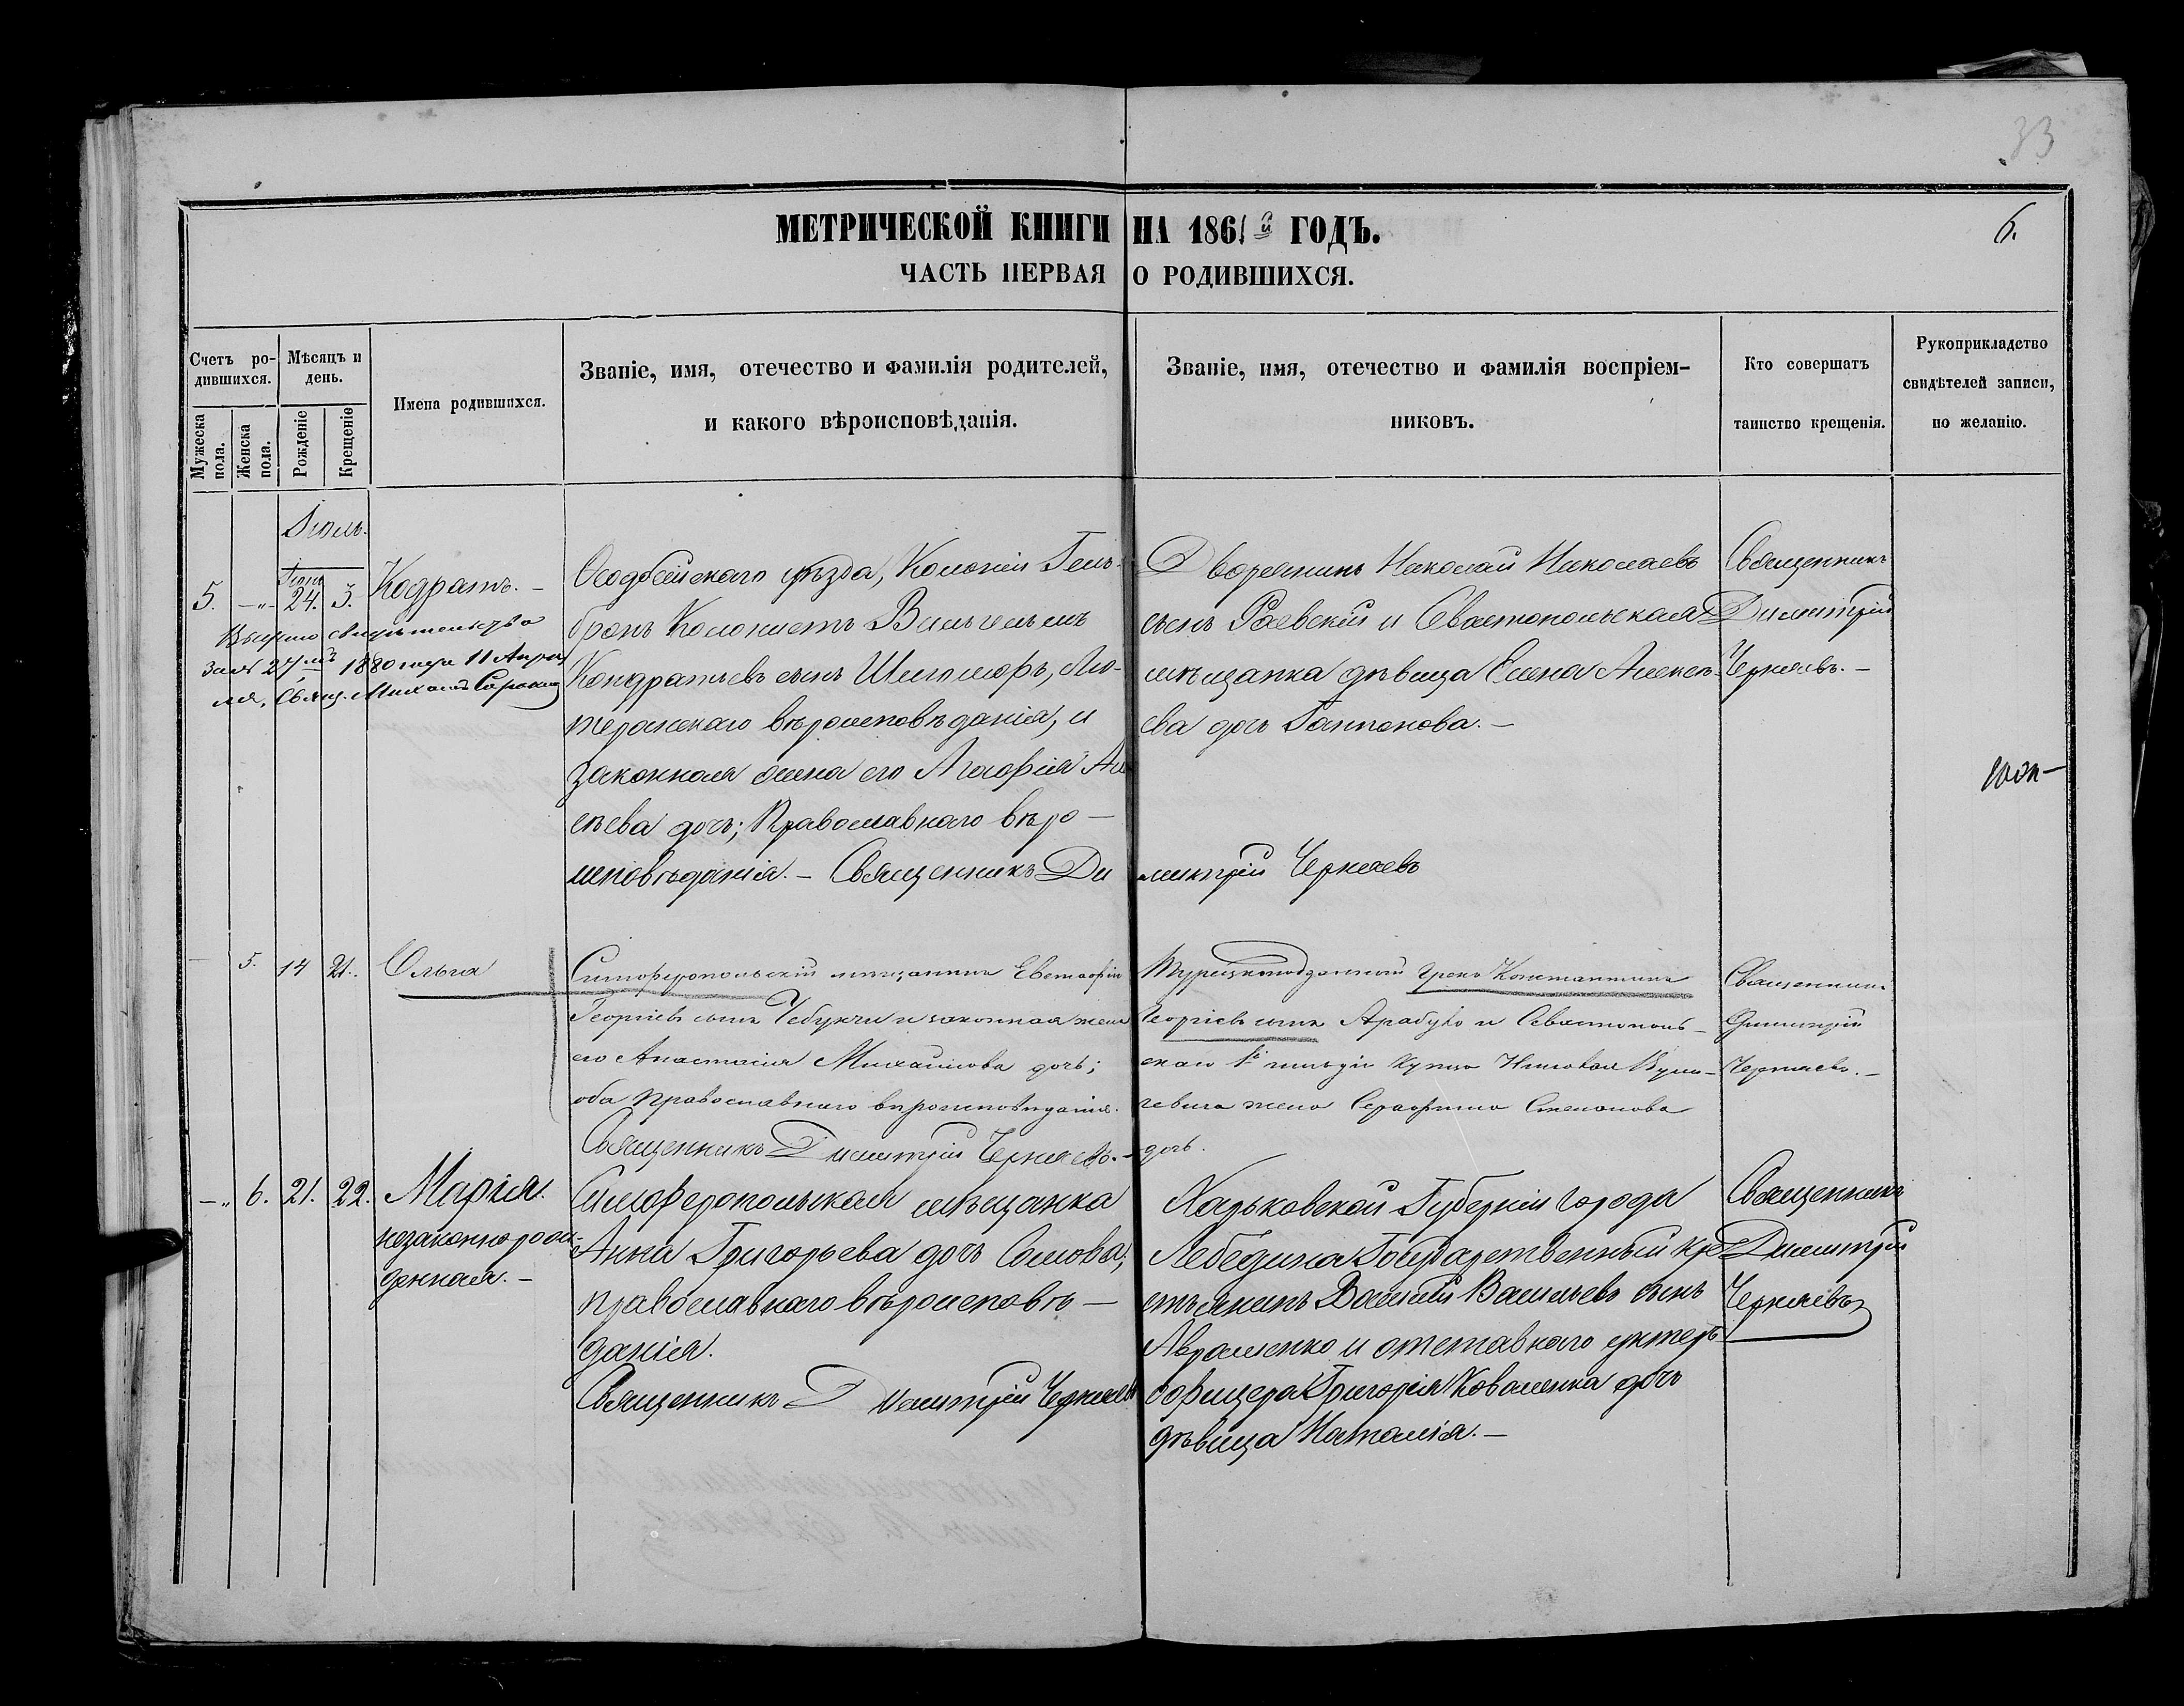 33
МЕТРИЧЕСКОЙ КНИГИ НА 1861й ГОДЪ.
6.
ЧАСТЬ ПЕРВАЯ О РОДИВШИХСЯ.
Счетъ ро-
дившихся.
Мужеска пола.
Женска пола.
Мѣсяцъ и
день.
Рожденіе
Крещеніе
Имена родившихся.
Званіе, имя, отечество и фамилія родителей,
и какого вѣроисповѣданія.
Званіе, имя, отечество и фамилія воспріем-
никовъ.
Кто совершатъ
таинство крещенія.
Рукоприкладство
свидѣтелей записи,
по желанію.
Іюль.
5. -„- Іюня 24. 3.
Кодратъ. -
свидѣтельство
за № 27 1880 года 11 Апрѣ
ля, Свящ. Михаилъ
уѣзда, Колоніи Гель-
бронъ Колонистъ Вильгельмъ
Кондратьевъ сынъ Лю-
теранскаго вѣроисповѣданія, и
законная жена его Агафія
сѣева дочь; Православнаго вѣро-
исповѣданія. - Священникъ Димитрій Черняевъ
Дворянинъ Николай Николаевъ
сынъ Раевскій и Севастопольская
мѣщанка дѣвица Елена Алексѣ-
ева дочь Гаппонова. -
Священникъ
Димитрій
Черняевъ. -
5. 14 21.
Ольга
Симферопольскій мѣщанинъ Евстафій
Георгіевъ сынъ Чебукчи и законная жена
его Анастасія Михайлова дочь;
оба Православнаго вѣроисповѣданія.
Священникъ Димитрій Черняевъ. -
Турецкоподданный Грекъ Константинъ
Георгіевъ сынъ и Севастополь-
скаго гильдіи купца
жена Серафима Степанова
дочь.
Священникъ
Димитрій
Черняевъ. -
-„ 6. 21. 22.
Марія.
незаконнорож-
денная. -
Симферопольская мѣщанка
Анна Григорьева дочь Сомова,
православнаго вѣроисповѣ-
данія.
Священникъ Димитрій Черняевъ
Харьковской Губерніи города
Лебедина Государственный кре
стьянинъ Василій Васильевъ сынъ
Авраменко и отставнаго унтеръ
офицера Григорія Коваленка дочь
дѣвица Наталія. -
Священникъ
Димитрій
Черняевъ